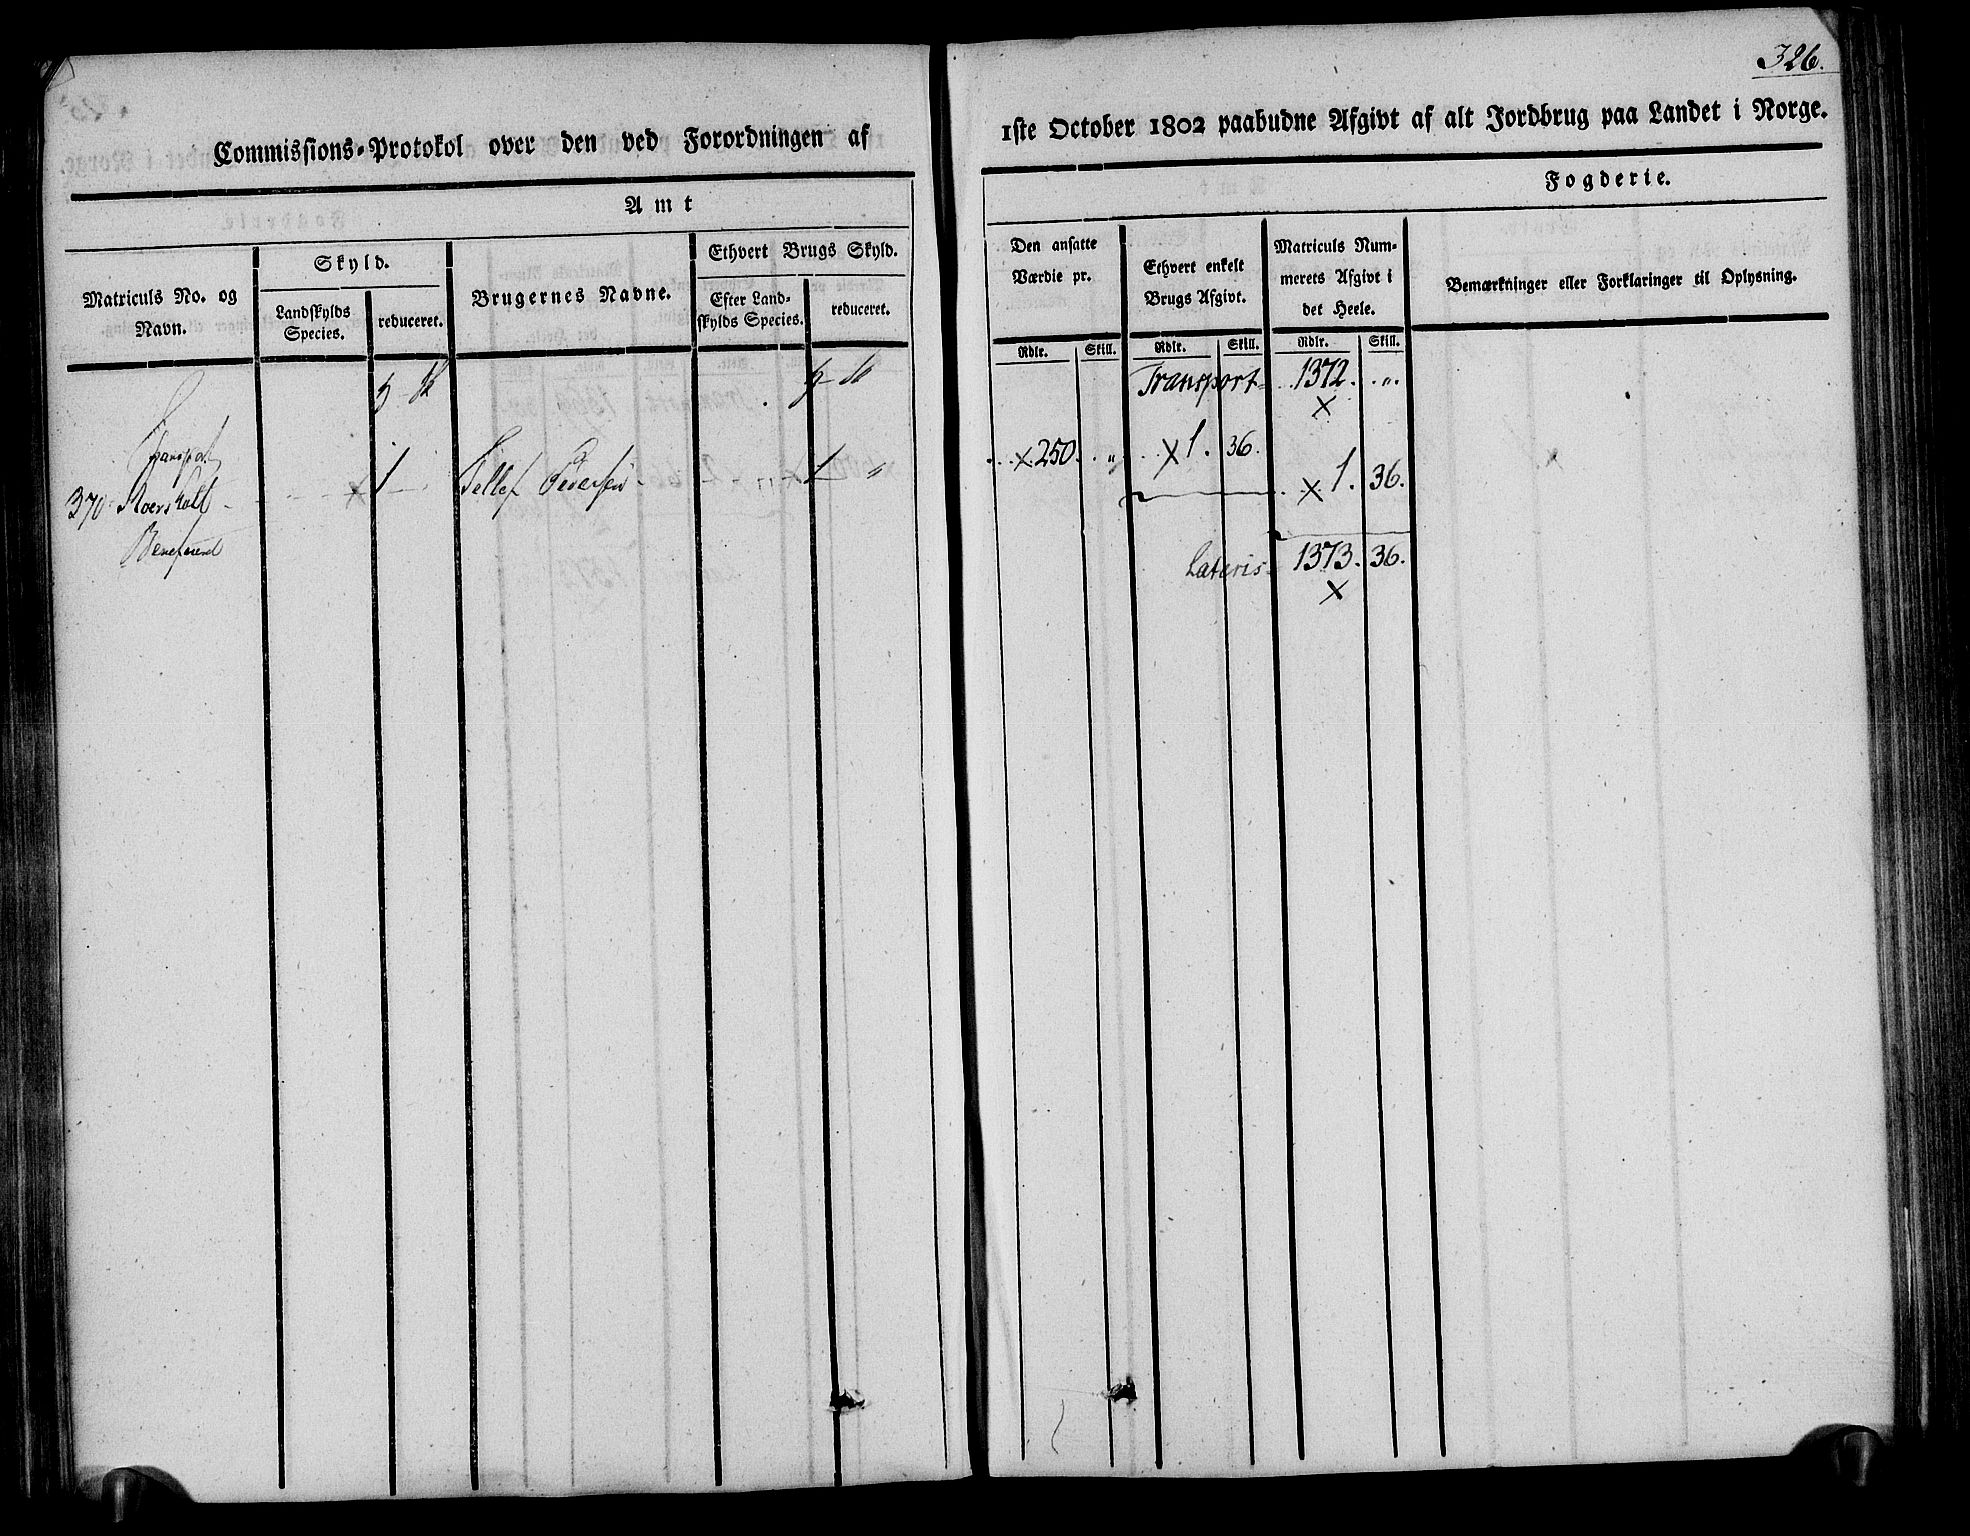 326.
Commissions-Protokol over den ved Forordningen af
1ste October 1802 paabudne Afgivt af alt Jordbrug paa Landet i Norge.
Amt
Fogderie.
Matriculs No. og Navn.
Skyld.
Landskylds Species.
reduceret.
Brugernes Navne.
Ethvert Brugs Skyld.
Efter Landskylds Species.
reduceret.
Den ansatte Værdie pr.
Rdlr. Skill.
Ethvert enkelt Brugs Afgivt.
Rdlr. Skill.
Matriculs Nummerets Afgivt i det Heele.
Rdlr. Skill.
Bemærkninger eller Forklaringer til Oplysning.
Transport 1372. „
Transport
370 1 Tellef Pedersen 1 „ 250. „ 1. 36. 1. 36.
Lateris 1373. 36.